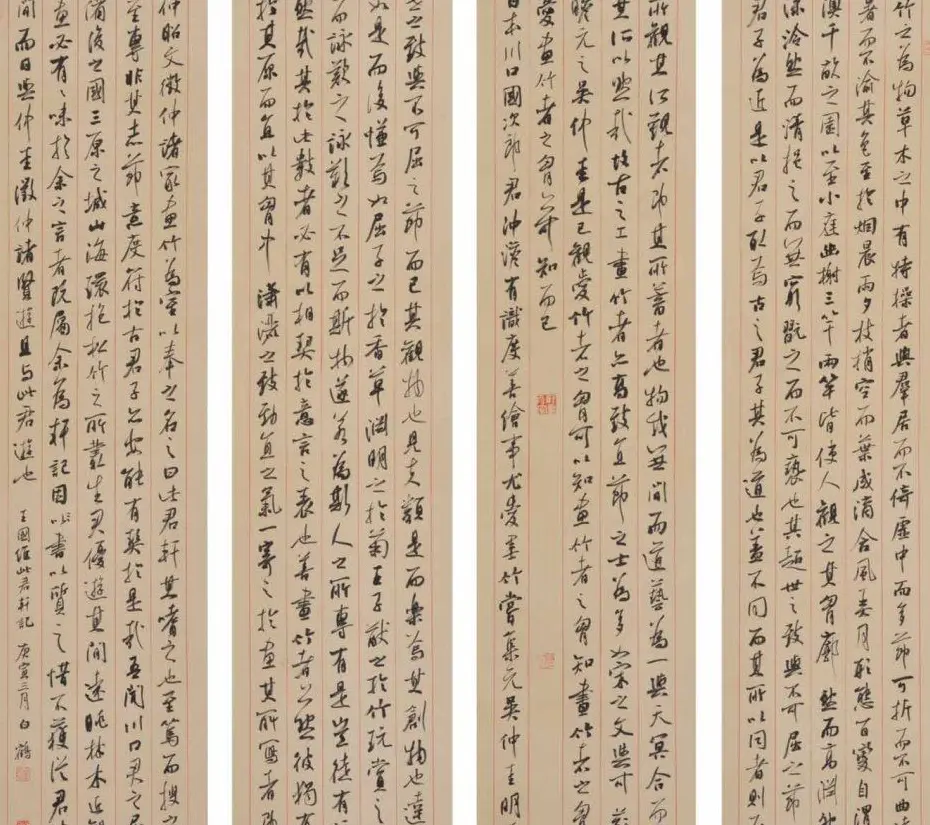 竹之為物草木之中有特操者與羣居而不倚虛中而多節可折而不可曲
暑而不渝其色至於烟晨雨夕枝梢空而葉成滴含風弄月形態百變自渭
澳千畝之園以至小庭幽榭三竿兩竿皆使人觀之其胷廓然而高淵然
深泠然而清挹之而無窮翫之而不可褻也其超世之致與不可屈之節
君子為近是以君子取焉古之君子其為道也蓋不同而其所以同者則
之致與不可屈之節而已其觀物也見夫類是而樂焉其創物也達
如是而後慊焉如屈子之於香草淵明之於菊王子猷之於竹玩賞之
而詠歎之詠歎之不足而斯物遂若為斯人之所專有是豈徒有
然哉其於此數者必有以相契於意言之表也善畫竹者亦然彼獨有
於其原而直以其胷中瀟灑之致勁直之氣一寄之於畫其所寫者即
所觀其所觀者即其所蓄者也物我無間而道藝為一與天冥合而
其所以然哉故古之工畫竹者亦高致直節之士為多如宋之文與可蘇
瞻元之吳仲圭是已觀愛竹者之胷可以知畫竹者之胷知畫竹者之胷
愛畫竹者之胷亦可知而已
日本川口國次郎君沖澹有識度善繪事尤愛墨竹嘗集元吳仲圭明
仲昭文徵仲諸家畫竹為室以奉之名之曰此君軒其嗜之也至篤而搜之
至專非其志節意度符於古君子亦安能有契於是哉吾聞川口君之居
備後之國三原之城山海環抱松竹之所叢生君優遊其間遠眺林木近觀
畫必有味於余之言者既屬余為軒記因以書以質之惜不獲從君
間而日與仲圭徵仲諸賢遊且與此君遊也 王國維此君軒記 庚寅三月 白鶴